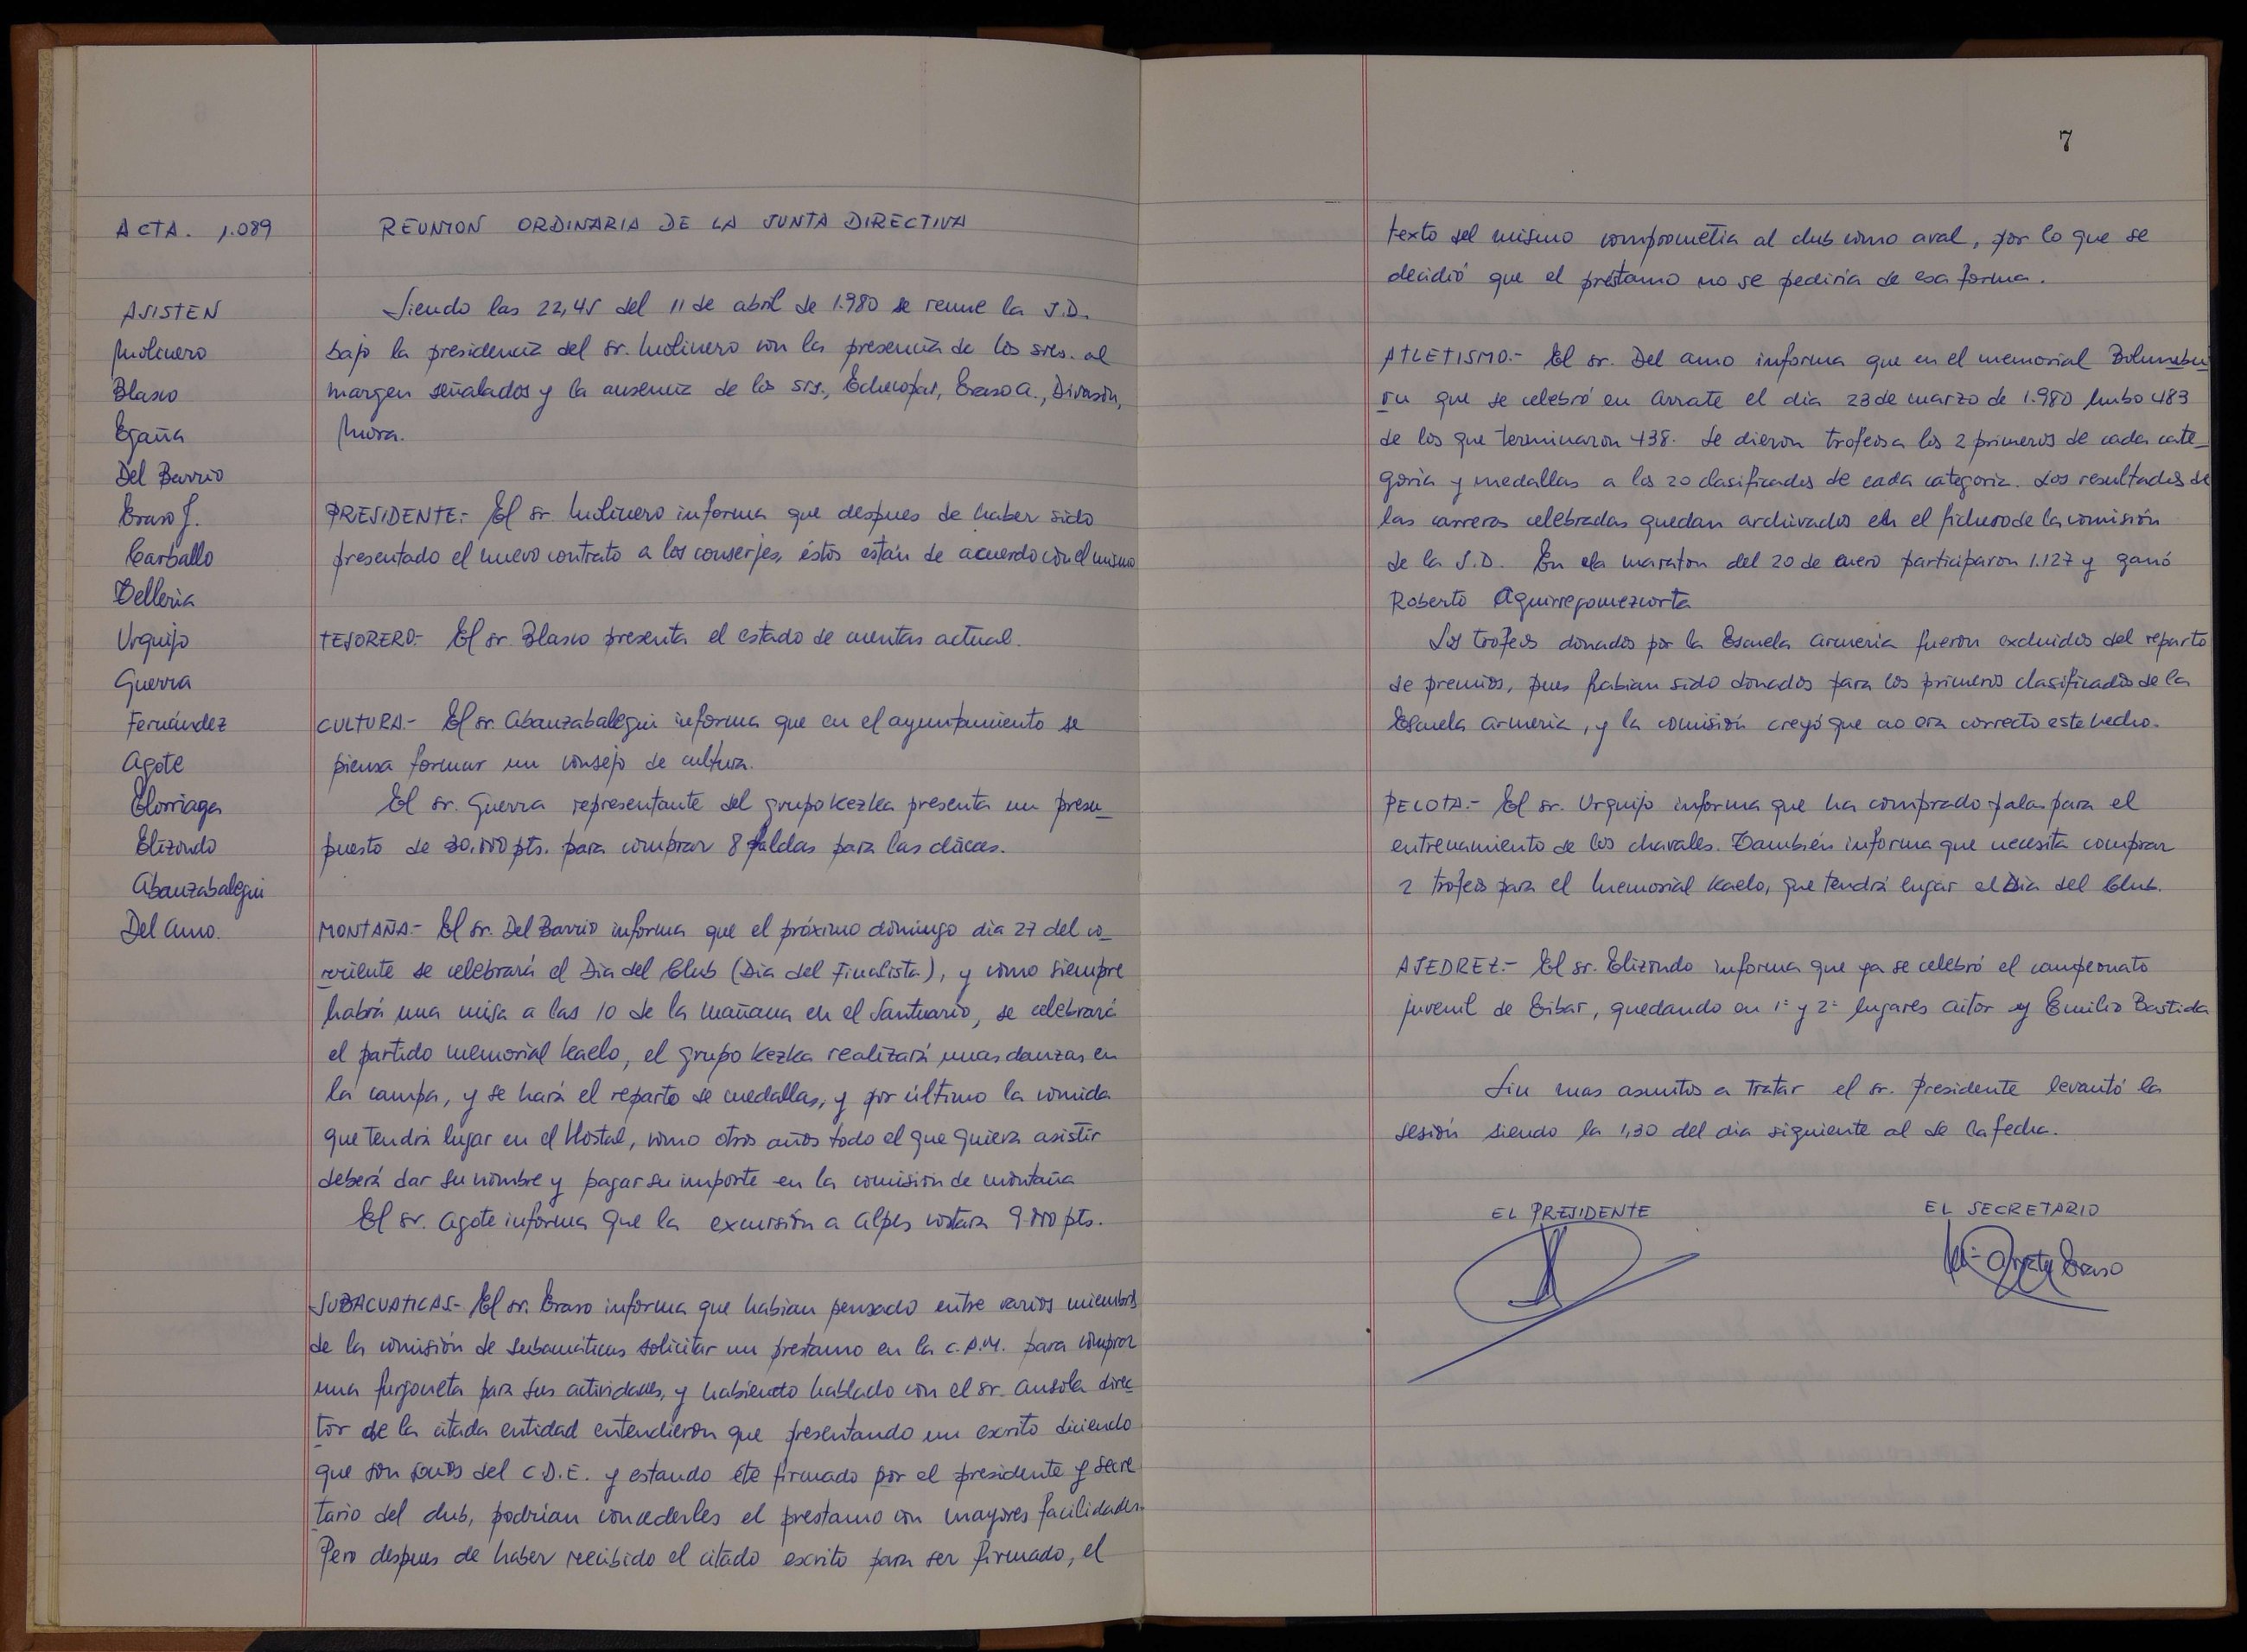 ACTA. 1.089
ASISTEN
Molinero
Blasco
Egaña
Del Barrio
Eraso J.
Carballo
Telleria
Urquijo
Guerra
Fernández
Agote
Elorriaga
Elizondo
Abanzabalegui
Del Amo.
REUNION ORDINARIA DE LA JUNTA DIRECTIVA
Siendo las 22,45 del 11 de abril de 1.980 se reune la J.D.
bajo la presidencia del sr. Molinero con la presencia de los sres. al
margen señalados y la ausencia de los srs., Eraso A.,
Mora.
PRESIDENTE.- El sr. Molinero informa que despues de haber sido
presentado el nuevo contrato a los conserjes, éstos están de acuerdo con el mismo
TESORERO.- El sr. Blasco presenta el estado de cuentas actual.
CULTURA.- El sr. Abanzabalegui informa que en el ayuntamiento se
piensa formar un consejo de cultura.
El sr. Guerra representante del grupo Kezka presenta un presu-
puesto de 30.000 pts. para comprar 8 faldas para las chicas.
MONTAÑA.- El sr. Del Barrio informa que el próximo domingo dia 27 del co-
rriente se celebrará el Dia del Club (Dia del Finalista), y como siempre
habrá una misa a las 10 de la mañana en el Santuario, se celebrará
el partido memorial Kaelo, el grupo Kezka realizará unas danzas en
la campa, y se hará el reparto de medallas, y por último la comida
que tendrá lugar en el Hostal, como otros años todo el que quiera asistir
deberá dar su nombre y pagar su importe en la comisión de montaña
El sr. Agote informa que la excursión a Alpes costara 9.000 pts.
SUBACUATICAS.- El sr. Eraso informa que habian pensado entre varios miembros
de la comisión de subacuáticas solicitar un prestamo en la C.A.M. para comprar
una furgoneta para sus actividades, y habiendo hablado con el sr. Ansola direc
tor de la citada entidad entendieron que presentando un escrito diciendo
que son socios del C.D.E. y estando éte firmado por el presidente y secre
tario del club, podrian concederles el prestamo con mayores facilidades.
Pero despues de haber recibido el citado escrito para ser firmado, el
7
texto del mismo comprometia al club como aval, por lo que se
decidió que el préstamo no se pediría de esa forma.
ATLETISMO.- El sr. Del Amo informa que en el memorial Bolumbu
ru que se celebró en Arrate el dia 23 de marzo de 1.980 hubo 483
de los que terminaron 438. Se dieron trofeos a los 2 primeros de cada cate-
goria y medallas a los 20 clasificados de cada categoria. Los resultados de
las carreras celebradas quedan archivados en el fichero de la comisión
de la J.D. En la maraton del 20 de enero participaron 1.127 y ganó
Roberto Aguirregomezcorta
Los trofeos donados por la Escuela Armeria fueron excluidos del reparto
de premios, pues habian sido donados para los primeros clasificados de la
Escuela Armeria, y la comisión creyó que no era correcto este hecho.
PELOTA.- El sr. Urquijo informa que ha comprado palas para el
entrenamiento de los chavales. También informa que necesita comprar
2 trofeos para el memorial Kaelo, que tendrá lugar el Dia del Club.
AJEDREZ.- El sr. Elizondo informa que ya se celebró el campeonato
juvenil de Eibar, quedando en 1º y 2º lugares Aitor y Emilio Bastida
Sin mas asuntos a tratar el sr. presidente levantó la
sesión siendo la 1,30 del dia siguiente al de la fecha.
EL PRESIDENTE
EL SECRETARIO
Eraso